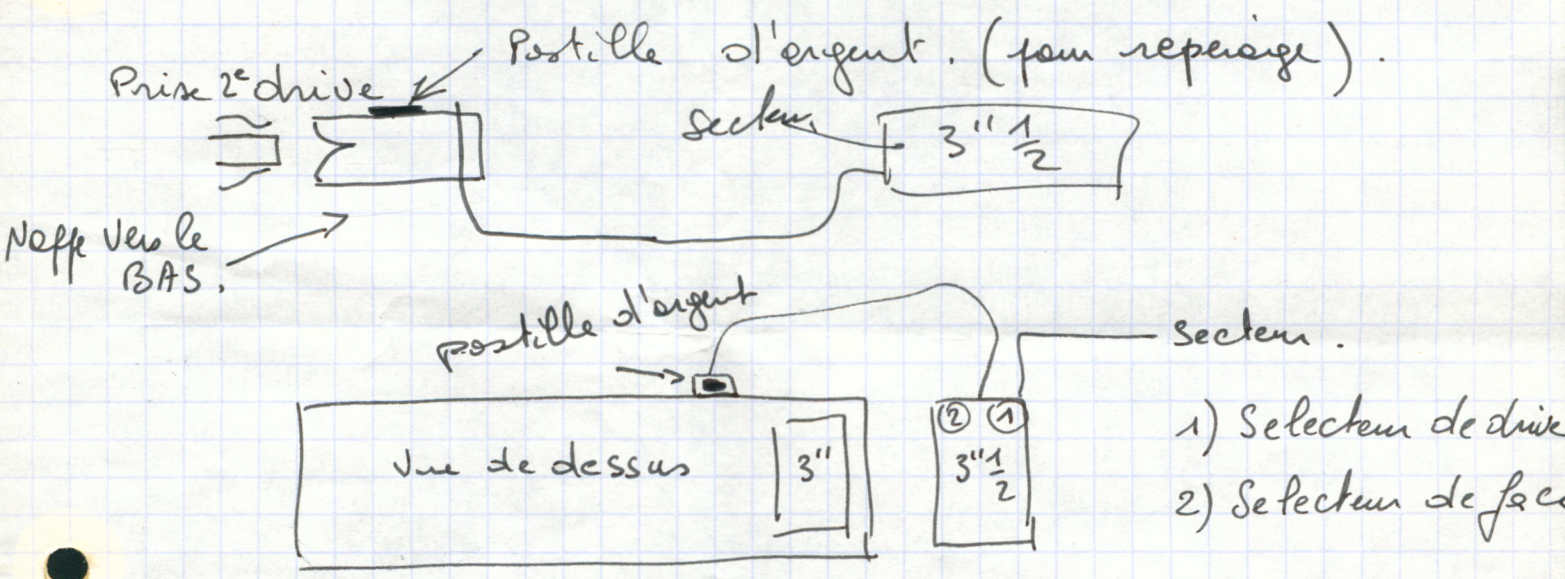 Pastille d'argent. (pour repérage).
Prise 2e drive
secteur
3" 1/2
Nappe vers le
BAS.
pastille d'argent
secteur.
② ①
vue de dessus
3"
3" 1/2
1) Selecteur de drive
2) Selecteur de face